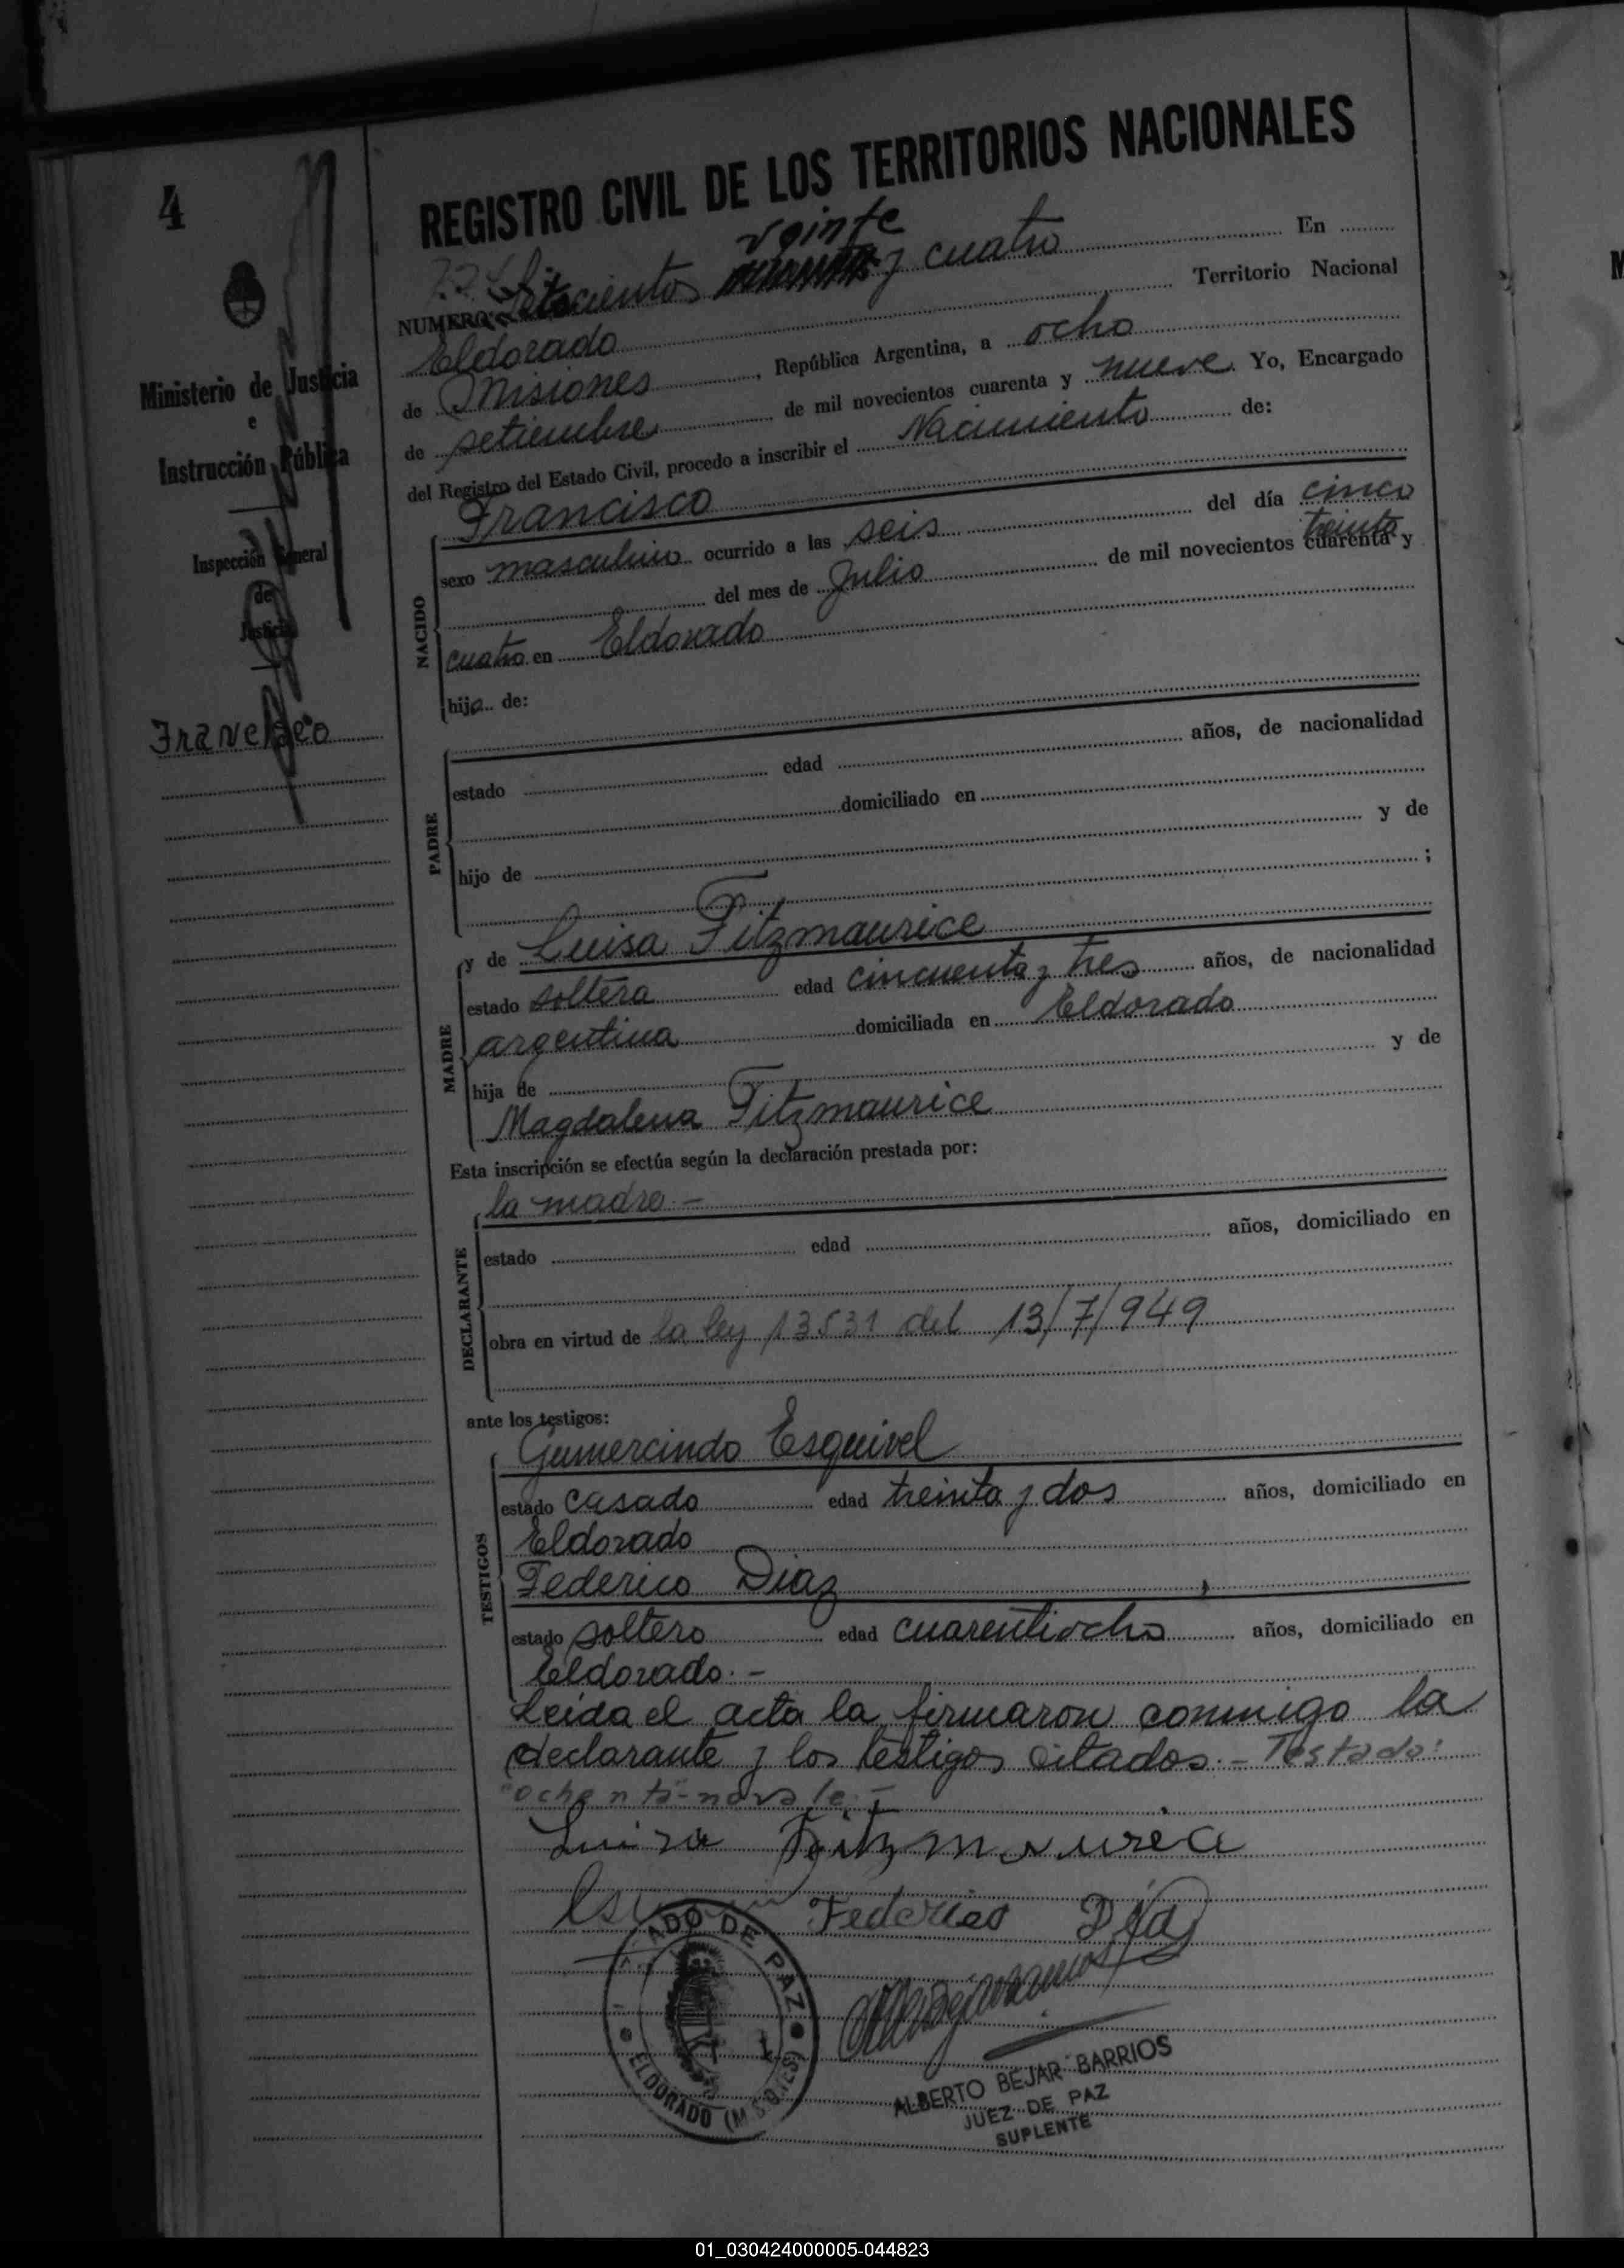 4
REGISTRO CIVIL DE LOS TERRITORIOS NACIONALES
veinte
NUMERO Setecientos y cuatro En
Eldorado Territorio Nacional
de Misiones, República Argentina, a ocho
de setiembre de mil novecientos cuarenta y nueve. Yo, Encargado
del Registro del Estado Civil, procedo a inscribir el Nacimiento de:
Ministerio de Justicia
e
Instrucción Pública
Inspección General
de
Justicia
Francisco
NACIDO
Francisco
sexo masculino ocurrido a las seis del día cinco
treinta
del mes de Julio de mil novecientos cuarenta y
cuatro en Eldorado
hijo de:
PADRE
estado edad años, de nacionalidad
domiciliado en
hijo de y de
;
MADRE
y de Luisa Fitzmaurice
estado soltera edad cincuenta y tres años, de nacionalidad
argentina domiciliada en Eldorado
hija de y de
Magdalena Fitzmaurice
Esta inscripción se efectúa según la declaración prestada por:
la madre -
DECLARANTE
estado edad años, domiciliado en
obra en virtud de la ley 13531 del 13/7/949
ante los testigos:
TESTIGOS
Gumercindo Esquivel
estado casado edad treinta y dos años, domiciliado en
Eldorado
Federico Diaz
estado soltero edad cuarentiocho años, domiciliado en
Eldorado. -
Leída el acta la firmaron conmigo la
declarante y los testigos citados. - Testado:
"ochenta" - no vale. -
Luisa Fitzmaurice
Federico Diaz
ADO DE PAZ
ELDORADO
ALBERTO BEJAR BARRIOS
JUEZ DE PAZ
SUPLENTE
01_030424000005-044823